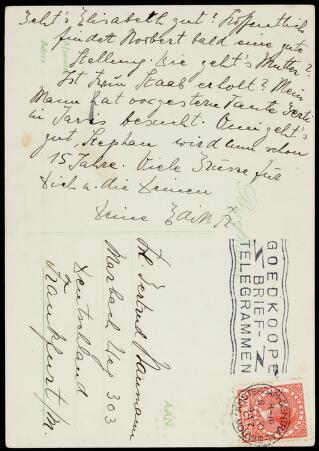 Geht's Elisabeth gut? Hoffentlich
findet Norbert bald eine gute
Stellung. Wie geht's Mutter?
Ist Frau Staab erholt? Mein
Mann hat vorgestern Tante
in Paris besucht. Omi geht's
gut, Stephan wird nun schon
15 Jahre. Viele Grüsse für
Dich u. die Deinen
Deine Edith Fr.
AAN
Fr. Gertrud Naumann
Marbach Weg 303
Frankfurt/M.
Deutschland
GOEDKOOPE
BRIEF-
TELEGRAMMEN